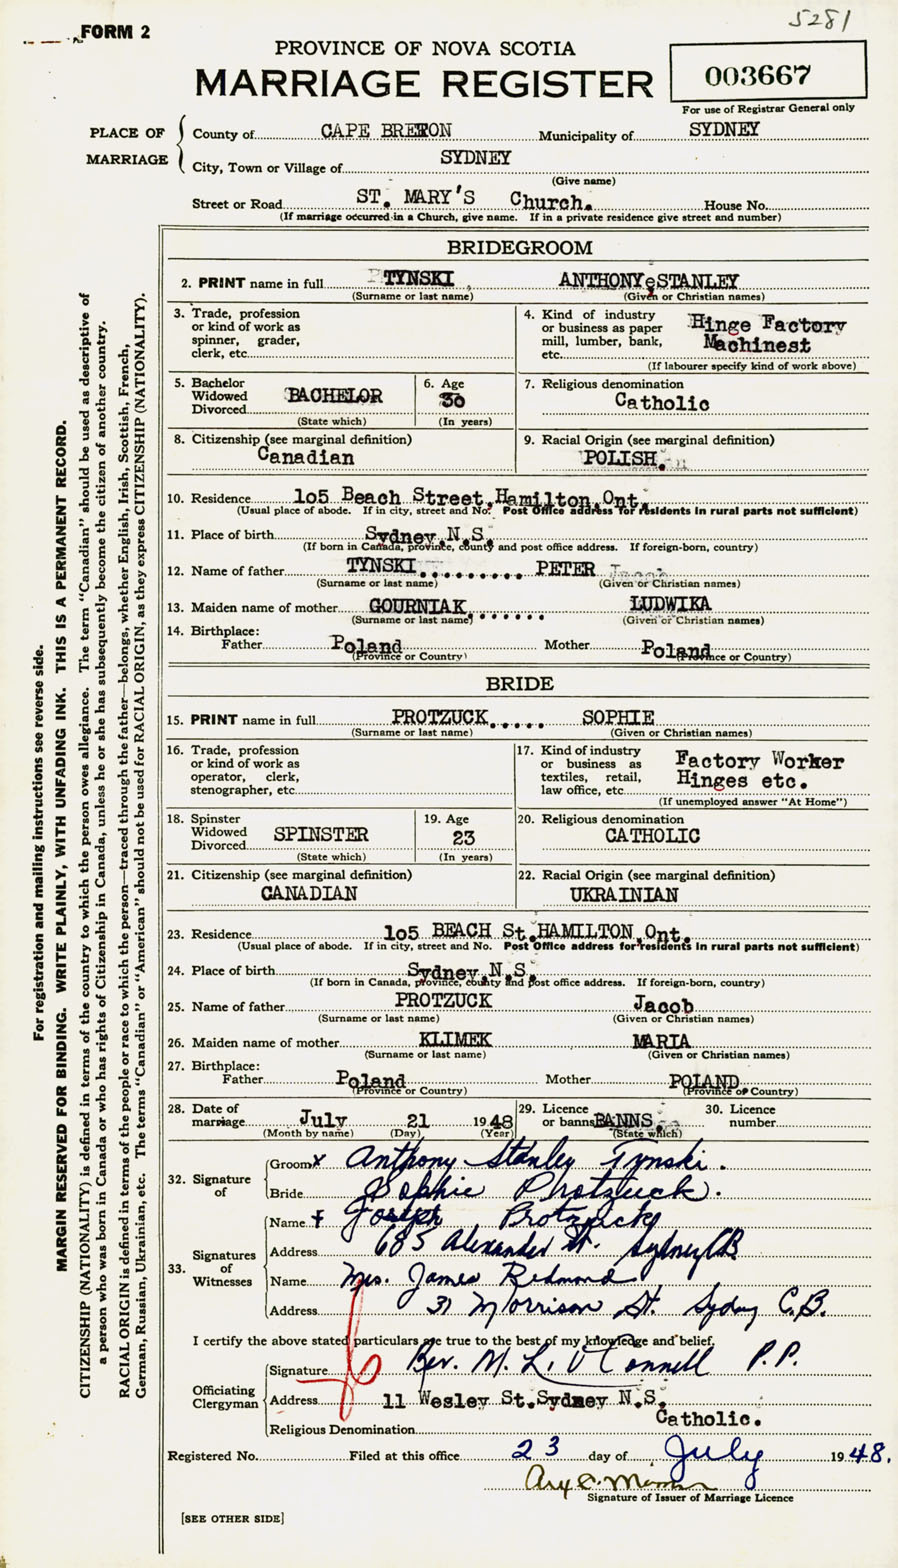 5281
FORM 2
PROVINCE OF NOVA SCOTIA
MARRIAGE REGISTER
003667
For use of Registrar General only
PLACE OF MARRIAGE
County of CAPE BRETON Municipality of SYDNEY
City, Town or Village of SYDNEY
(Give name)
Street or Road ST. MARY'S Church. House No.
(If marriage occurred in a Church, give name. If in a private residence give street and number)
BRIDEGROOM
2. PRINT name in full TYNSKI ANTHONY STANLEY
(Surname or last name) (Given or Christian names)
3. Trade, profession 4. Kind of industry
or kind of work as or business as paper Hinge Factory
spinner, grader, mill, lumber, bank, Machinest
clerk, etc. etc.
(If labourer specify kind of work above)
5. Bachelor 6. Age 7. Religious denomination
Widowed BACHELOR 30 Catholic
Divorced
(State which) (In years)
8. Citizenship (see marginal definition) 9. Racial Origin (see marginal definition)
Canadian POLISH.
10. Residence 105 Beach Street, Hamilton, Ont.
(Usual place of abode. If in city, street and No. Post Office address for residents in rural parts not sufficient)
11. Place of birth Sydney, N.S.
(If born in Canada, province, county and post office address. If foreign-born, country)
12. Name of father TYNSKI PETER
(Surname or last name) (Given or Christian names)
13. Maiden name of mother GOURNIAK LUDWIKA
(Surname or last name) (Given or Christian names)
14. Birthplace:
Father Poland Mother Poland
(Province or Country) (Province or Country)
BRIDE
15. PRINT name in full PROTZUCK SOPHIE
(Surname or last name) (Given or Christian names)
16. Trade, profession 17. Kind of industry
or kind of work as or business as Factory Worker
operator, clerk, textiles, retail, Hinges etc.
stenographer, etc. law office, etc.
(If unemployed answer "At Home")
18. Spinster 19. Age 20. Religious denomination
Widowed SPINSTER 23 CATHOLIC
Divorced
(State which) (In years)
21. Citizenship (see marginal definition) 22. Racial Origin (see marginal definition)
CANADIAN UKRAINIAN
23. Residence 105 BEACH St. HAMILTON, Ont.
(Usual place of abode. If in city, street and No. Post Office address for residents in rural parts not sufficient)
24. Place of birth Sydney, N.S.
(If born in Canada, province, county and post office address. If foreign-born, country)
25. Name of father PROTZUCK Jacob
(Surname or last name) (Given or Christian names)
26. Maiden name of mother KLIMEK MARIA
(Surname or last name) (Given or Christian names)
27. Birthplace:
Father Poland Mother POLAND
(Province or Country) (Province or Country)
28. Date of 29. Licence 30. Licence
marriage July 21 1948 or banns BANNS. number
(Month by name) (Day) (Year) (State which)
32. Signature of
Groom x Anthony Stanley Tynski.
Bride Sophie Protzuck.
33. Signatures of Witnesses
Name + Joseph Protzuck
Address 685 Alexander St. Sydney C.B.
Name Mrs. James Redmond
Address 31 Morrison St. Sydney C.B.
I certify the above stated particulars are true to the best of my knowledge and belief.
Officiating Clergyman
Signature Rev. M. L. O'Connell P.P.
Address 11 Wesley St. Sydney N.S.
Catholic.
Religious Denomination
Registered No. Filed at this office 23 day of July 1948.
Signature of Issuer of Marriage Licence
[SEE OTHER SIDE]
For registration and mailing instructions see reverse side.
MARGIN RESERVED FOR BINDING. WRITE PLAINLY, WITH UNFADING INK. THIS IS A PERMANENT RECORD.
CITIZENSHIP (NATIONALITY) is defined in terms of the country to which the person owes allegiance. The term "Canadian" should be used as descriptive of
a person who was born in Canada or who has rights of Citizenship in Canada, unless he or she has subsequently become the citizen of another country.
RACIAL ORIGIN is defined in terms of the people or race to which the person—traced through the father—belongs, whether English, Irish, Scottish, French,
German, Russian, Ukrainian, etc. The terms "Canadian" or "American" should not be used for RACIAL ORIGIN, as they express CITIZENSHIP (NATIONALITY).